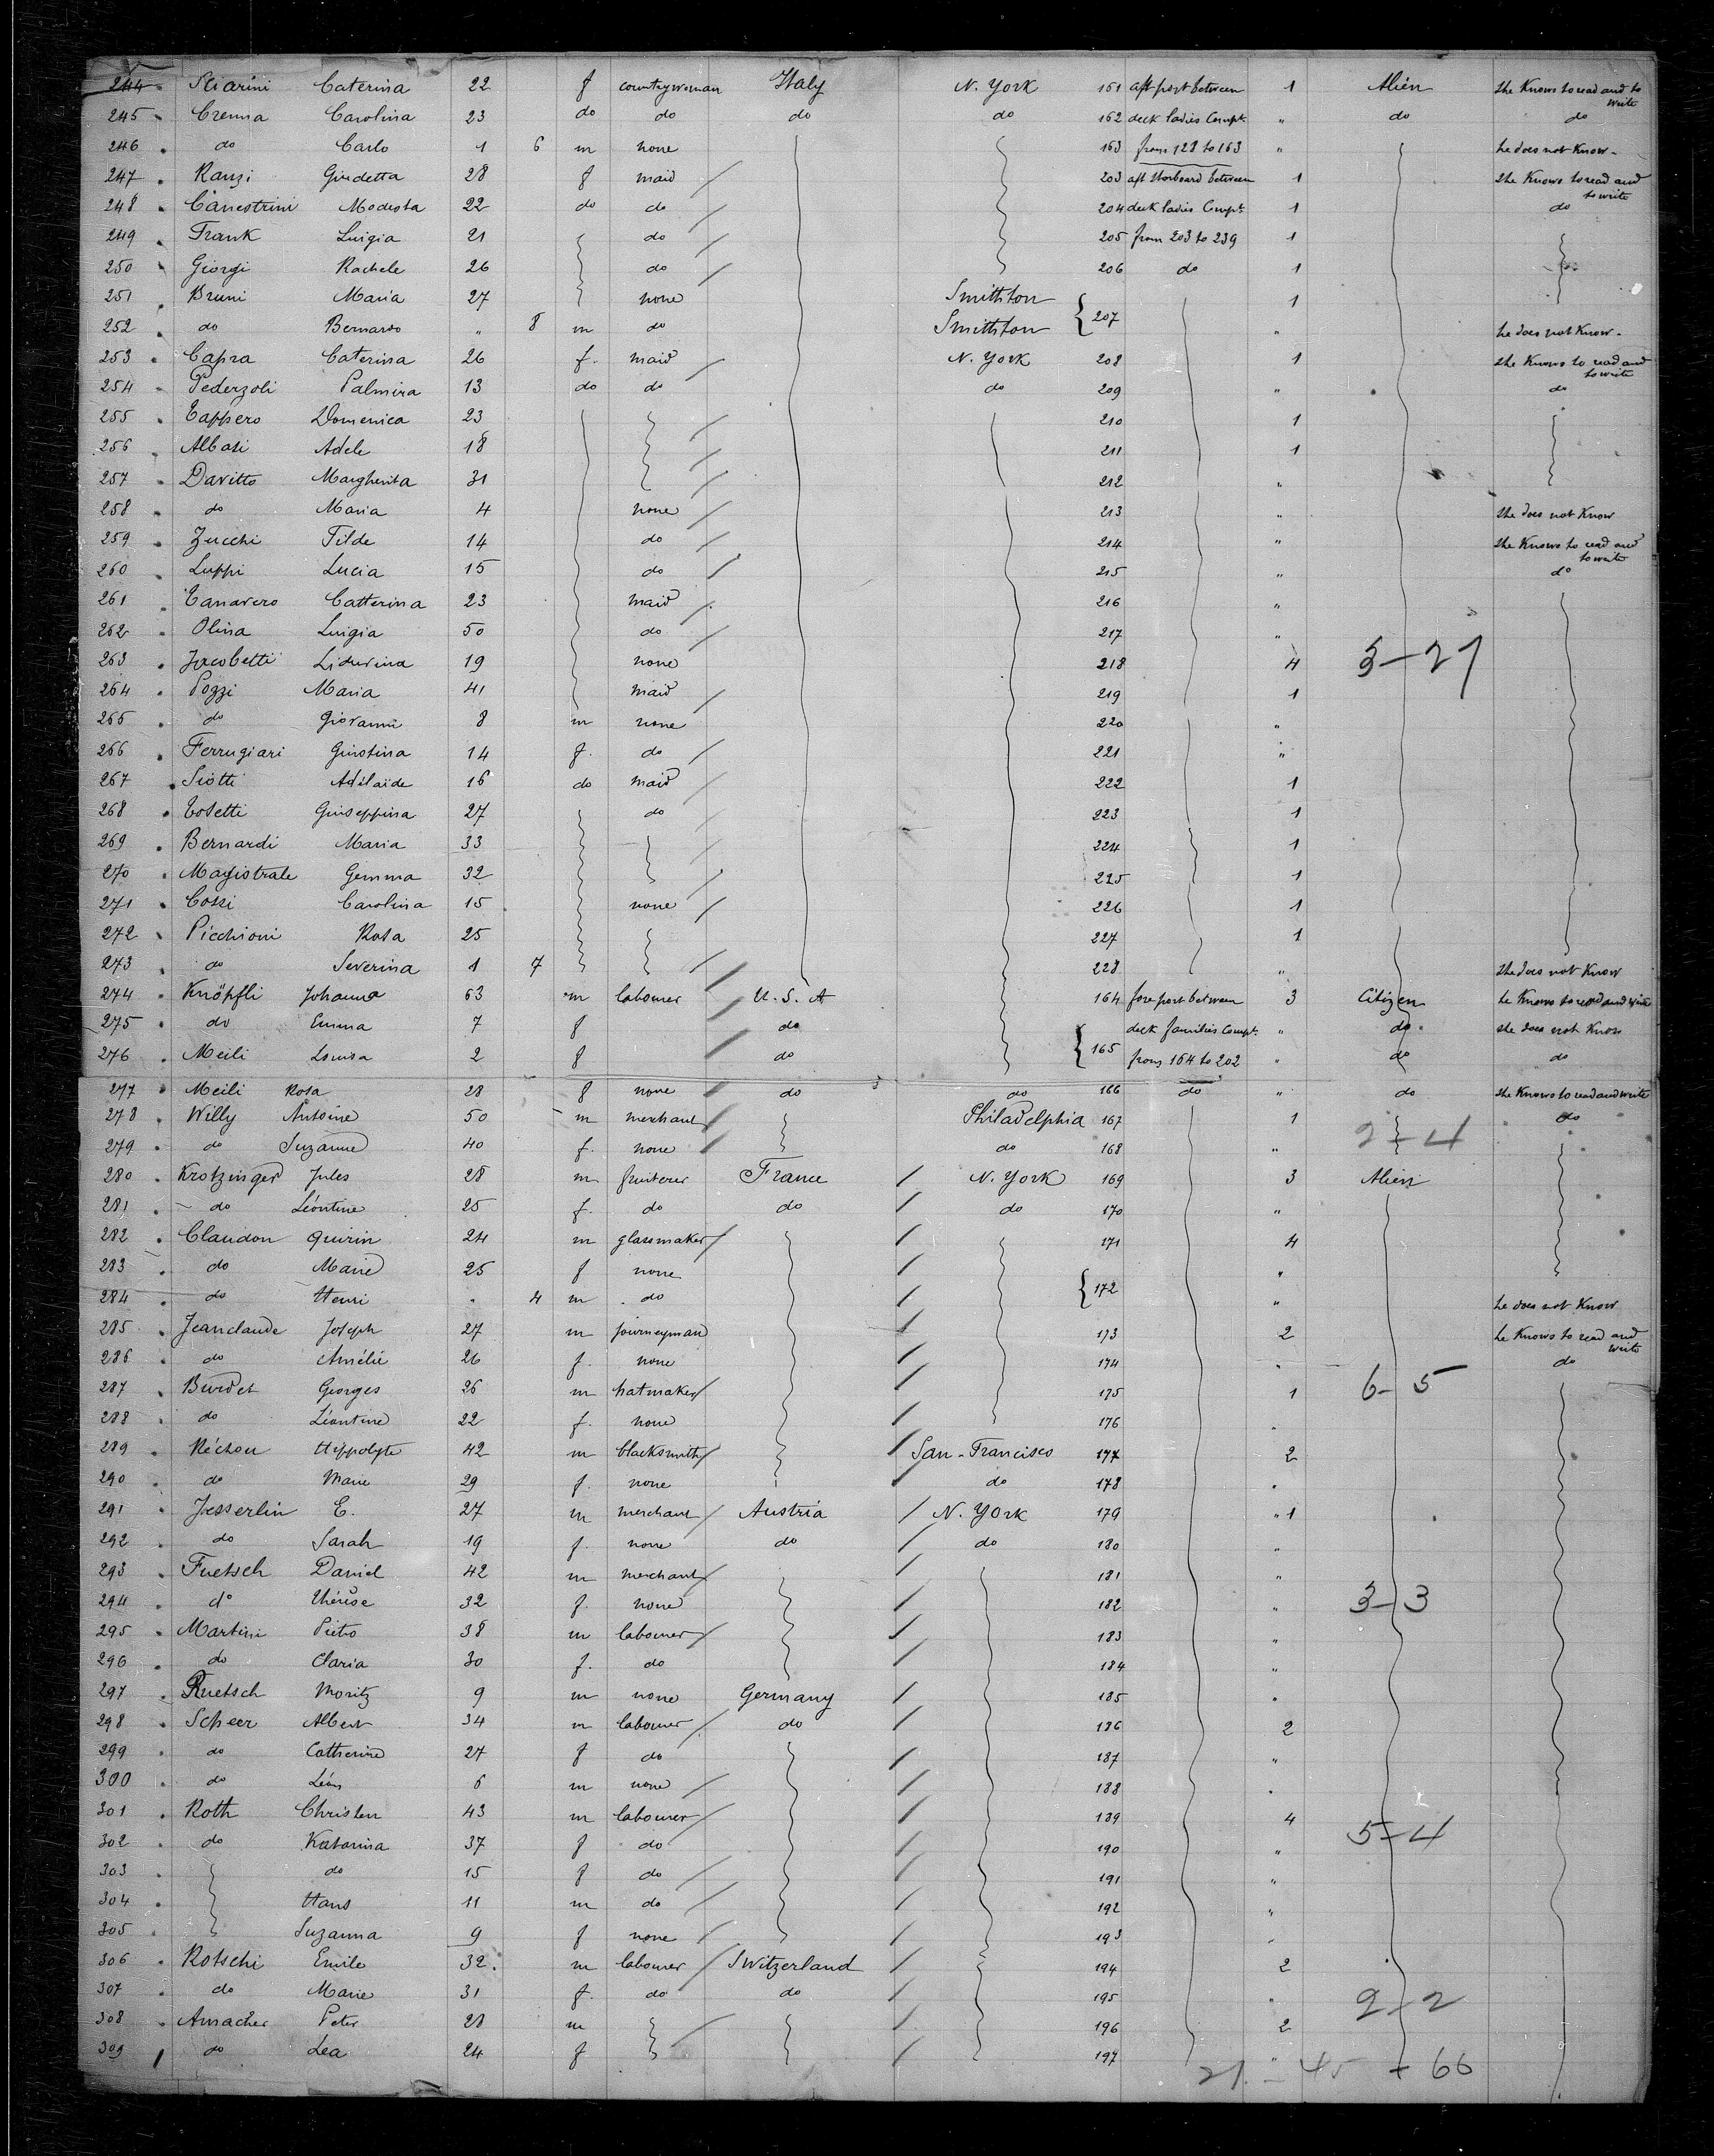 244 Sciarini Caterina 22 f countrywoman Italy N. York 161 aft port between 1 Alien she Knows to read and to write
245 Crenna Carolina 23 do do do do 162 deck ladies Compt. " do do
246 do Carlo 1 6 m none 163 from 128 to 163 " he does not Know
247 Ranzi Giudetta 28 f maid 203 aft starboard between 1 she Knows to read and to write
248 Canestrini Modesta 22 do do 204 deck ladies Compt. 1 do
249 Frank Luigia 21 do 205 from 203 to 239 1
250 Giorgi Rachele 26 do 206 do 1
251 Bruni Maria 27 none Smithton { 207 1
252 do Bernardo " 8 m do Smithton " he does not Know
253 Capra Caterina 26 f. maid N. York 208 1 she Knows to read and to write
254 Pederzoli Palmira 13 do do do 209 " do
255 Tappero Domenica 23 210 1
256 Albasi Adele 18 211 1
257 Davitto Margherita 31 212 "
258 do Maria 4 none 213 " she does not Know
259 Zucchi Tilde 14 do 214 " she Knows to read and to write
260 Luppi Lucia 15 do 215 " do
261 Canavero Catterina 23 maid 216 "
262 Olina Luigia 50 do 217 "
263 Jacobetti Lidurina 19 none 218 4 3-27
264 Pozzi Maria 41 maid 219 1
265 do Giovanni 8 m none 220 "
266 Ferrugiari Giustina 14 f. do 221 "
267 Siotti Adélaide 16 do maid 222 1
268 Tosetti Giuseppina 27 do 223 1
269 Bernardi Maria 33 224 1
270 Magistrale Gemma 32 225 1
271 Cossi Carolina 15 none 226 1
272 Picchioni Rosa 25 227 1
273 do Severina 1 7 228 " she does not Know
274 Knöpfli Johanna 63 m labourer U. S. A 164 fore port between 3 Citizen he Knows to read and write
275 do Emma 7 f do { 165 deck families Compt. " do she does not Know
276 Meili Louisa 2 f do from 164 to 202 " do do
277 Meili Rosa 28 f none do do 166 do " do she Knows to read and write
278 Willy Antoine 50 m merchant Philadelphia 167 1 do
279 do Suzanne 40 f. none do 168 " 2-4
280 Krotzinger Jules 28 m fruiterer France N. York 169 3 Alien
281 do Léontine 25 f. do do do 170 "
282 Claudon Quirin 24 m glassmaker 171 4
283 do Marie 25 f none { 172 "
284 do Henri . 4 m do " he does not Know
285 Jeanclaude Joseph 27 m journeyman 173 2 he Knows to read and write
286 do Amélie 26 f. none 174 " do
287 Burdet Georges 26 m hatmaker 175 1 6-5
288 do Léontine 22 f. none 176 "
289 Réchou Hippolyte 42 m blacksmith San-Francisco 177 2
290 do Marie 29 f. none do 178 "
291 Jesserlin E. 27 m merchant Austria N. York 179 " 1
292 do Sarah 19 f. none do do 180 "
293 Fuetsch David 42 m merchant 181 "
294 do Thérèse 32 f. none 182 " 3-3
295 Martini Pietro 38 m labourer 183 "
296 do Claria 30 f. do 184 "
297 Ruetsch Moritz 9 m none Germany 185 "
298 Scheer Albert 34 m labourer do 186 2
299 do Catherine 27 f do 187 "
300 do Léon 6 m none 188 "
301 Roth Christen 43 m labourer 189 4
302 do Katarina 37 f do 190 " 5-4
303 do 15 f do 191 "
304 Hans 11 m do 192 "
305 Suzanna 9 f none 193 "
306 Rotschi Emile 32. m labourer Switzerland 194 2
307 do Marie 31 f. do do 195 " 2-2
308 Amacher Peter 28 m 196 2
309 do Lea 24 f 197 "
21 - 45 + 66